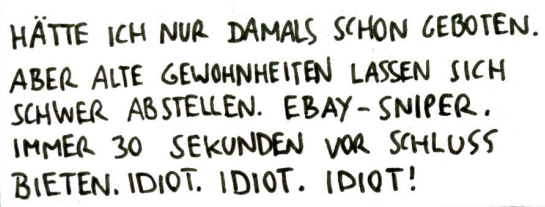 HÄTTE ICH NUR DAMALS SCHON GEBOTEN.
ABER ALTE GEWOHNHEITEN LASSEN SICH
SCHWER ABSTELLEN. EBAY-SNIPER.
IMMER 30 SEKUNDEN VOR SCHLUSS
BIETEN. IDIOT. IDIOT. IDIOT!